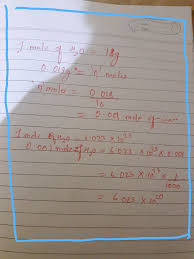 1 mole of H2O = 18g
0.018g = 'n' moles
'n' moles = 0.018
18
= 0.001 mole of
1 mole of H2O = 6.023 × 10^23
0.001 mole of H2O = 6.023 × 10^23 × 0.001
= 6.023 × 10^23 × 1
1000
= 6.023 × 10^20